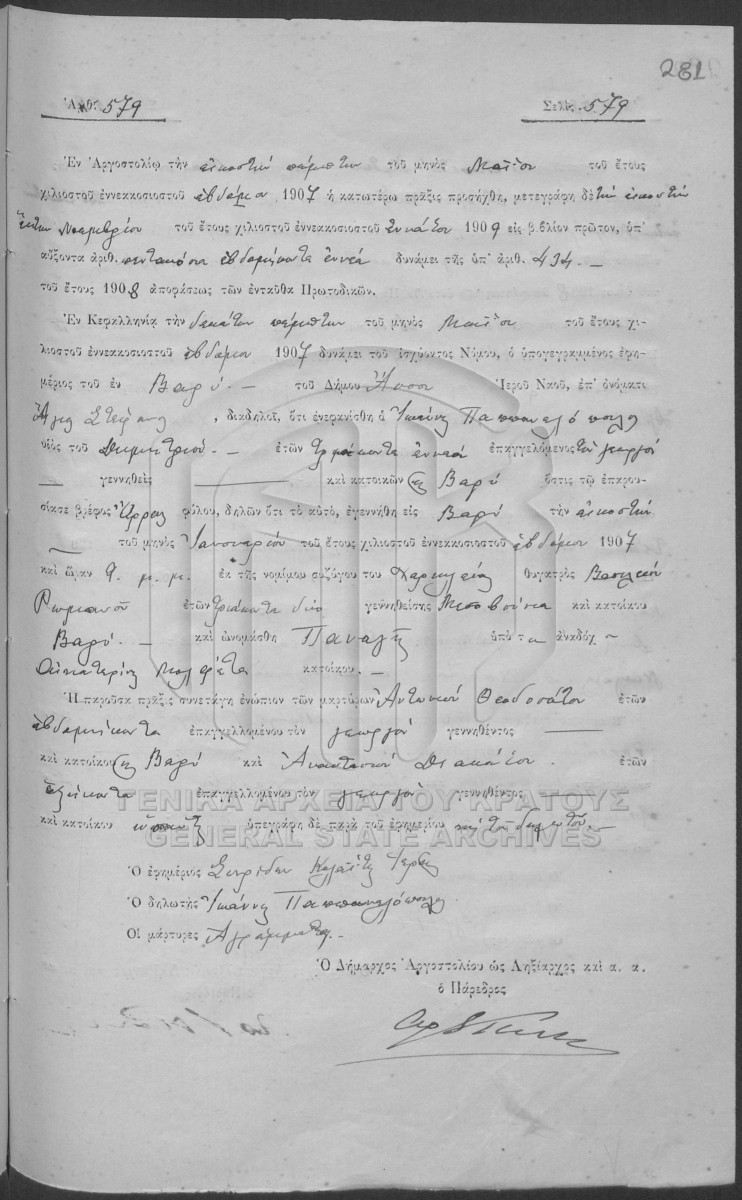 281
Ἀριθ. 579 Σελὶς 579
Ἐν Ἀργοστολίῳ τὴν εἰκοστὴν πέμπτην τοῦ μηνὸς Μαΐου τοῦ ἔτους
χιλιοστοῦ ἐννεακοσιοστοῦ ἑβδόμου 1907 ἡ κατωτέρω πρᾶξις προσήχθη, μετεγράφη δὲ τὴν εἰκοστὴν
ἕκτην Νοεμβρίου τοῦ ἔτους χιλιοστοῦ ἐννεακοσιοστοῦ ἐνάτου 1909 εἰς βιβλίον πρῶτον, ὑπ'
αὔξοντα ἀριθ. πεντακόσια ἑβδομήκοντα ἐννέα δυνάμει τῆς ὑπ' ἀριθ. 434 —
τοῦ ἔτους 1908 ἀποφάσεως τῶν ἐνταῦθα Πρωτοδικῶν.
Ἐν Κεφαλληνίᾳ τὴν δεκάτην πέμπτην τοῦ μηνὸς Μαΐου τοῦ ἔτους χι-
λιοστοῦ ἐννεακοσιοστοῦ ἑβδόμου 1907 δυνάμει τοῦ ἰσχύοντος Νόμου, ὁ ὑπογεγραμμένος ἐφη-
μέριος τοῦ ἐν Βαρύ. — τοῦ Δήμου Ἄσσου Ἱεροῦ Ναοῦ, ἐπ' ὀνόματι
Ἁγίου Στεφάνου, διαδηλοῖ, ὅτι ἐνεφανίσθη ὁ Ἰωάννης Παππανελόπουλος
υἱὸς τοῦ Δημητρίου. — ἐτῶν τριάκοντα ἐννέα ἐπαγγελόμενος τὸν γεωργὸν
— γεννηθεὶς — καὶ κατοικῶν εἰς Βαρύ ὅστις τῷ ἐπαρου-
σίασε βρέφος Ἄρρεν φύλου, δηλῶν ὅτι τὸ αὐτὸ, ἐγεννήθη εἰς Βαρύ τὴν εἰκοστὴν
— τοῦ μηνὸς Ἰανουαρίου τοῦ ἔτους χιλιοστοῦ ἐννεακοσιοστοῦ ἑβδόμου 1907
καὶ ὥραν 9. μ. μ. ἐκ τῆς νομίμου συζύγου του Χαρικλείας θυγατρὸς Βασιλείου
Ρωμανοῦ ἐτῶν τριάκοντα δύο γεννηθείσης καὶ κατοίκου
Βαρύ. — καὶ ὠνομάσθη Παναγῆς ὑπὸ τ ἀναδόχ
Αἰκατερίνη κατοίκου. —
Ἡ παροῦσα πρᾶξις συνετάγη ἐνώπιον τῶν μαρτύρων Ἀντωνίου Θεοδοσάτου ἐτῶν
ἑβδομήκοντα ἐπαγγελλομένου τὸν γεωργὸν γεννηθέντος —
καὶ κατοίκου εἰς Βαρύ καὶ Ἀναστασίου Διακάτου. ἐτῶν
ἑξήκοντα ἐπαγγελλομένου τὸν γεωργὸν γεννηθέντος —
καὶ κατοίκου ὑπεγράφη δὲ παρὰ τοῦ ἐφημερίου καὶ τοῦ δηλωτοῦ. —
ΓΕΝΙΚΑ ΑΡΧΕΙΑ ΤΟΥ ΚΡΑΤΟΥΣ
GENERAL STATE ARCHIVES
Ὁ ἐφημέριος Σπυρίδων Ἱερεὺς
Ὁ δηλωτὴς Ἰωάννης Παππανελόπουλος
Οἱ μάρτυρες Ἀγράμματοι —
Ὁ Δήμαρχος Ἀργοστολίου ὡς Ληξίαρχος καὶ α. α.
ὁ Πάρεδρος